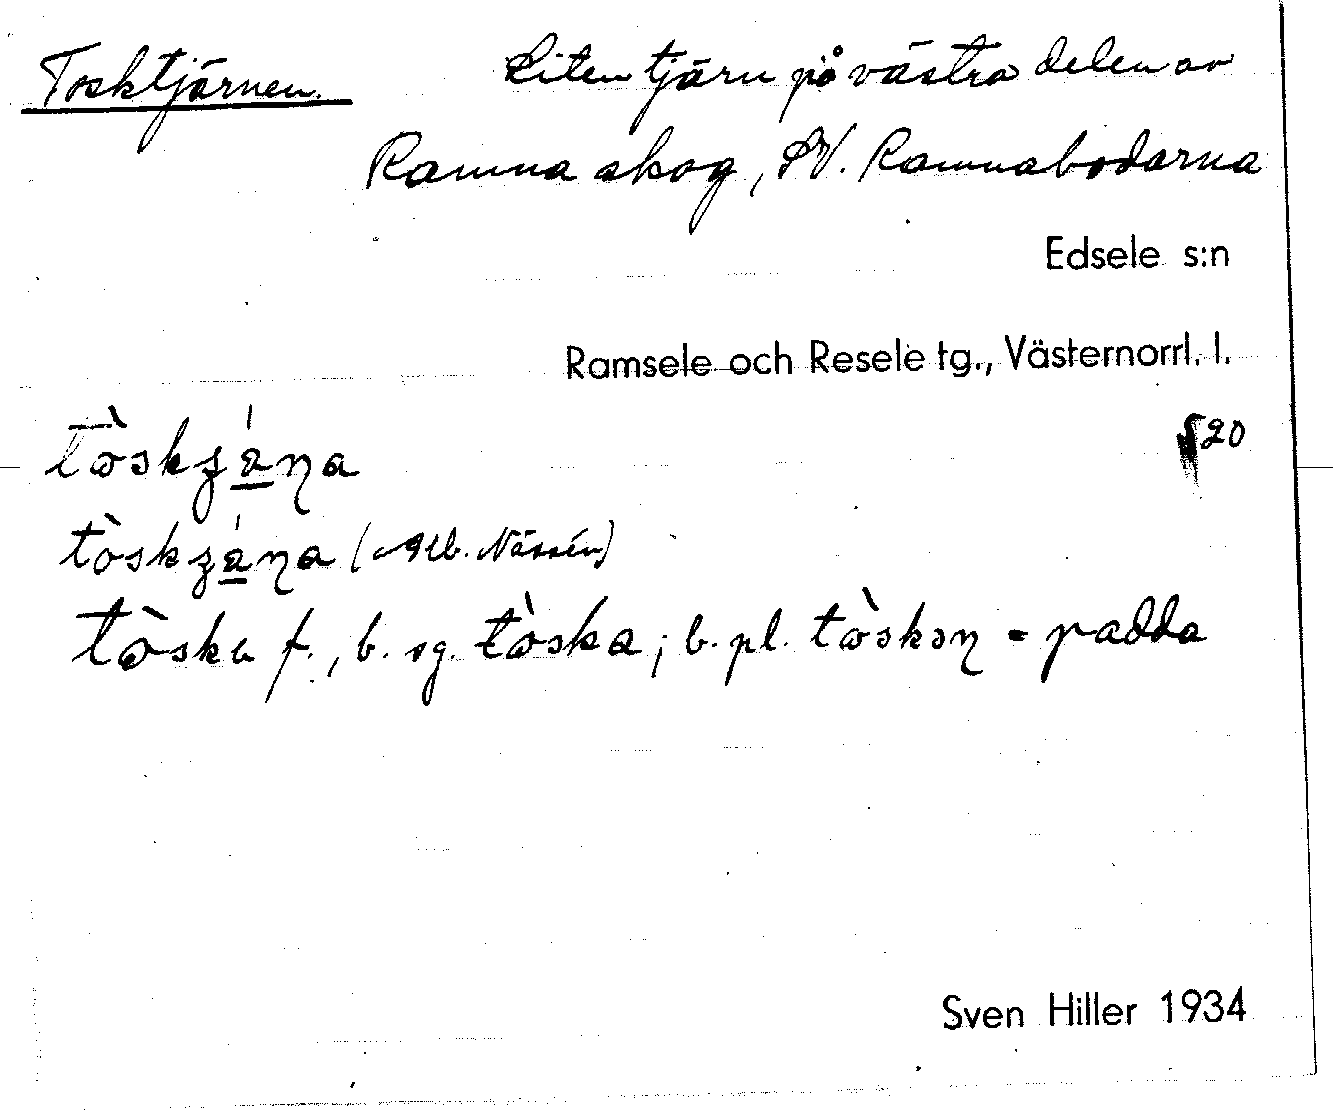 Tosktjärnen. Liten tjärn på västra delen av
Ramna skog, SV. Ramnabodarna
Edsele s:n
Ramsele och Resele tg., Västernorrl. l.
20
(Alb. Nässén)
f., b. sg. tòska; b. pl. = padda
Sven Hiller 1934